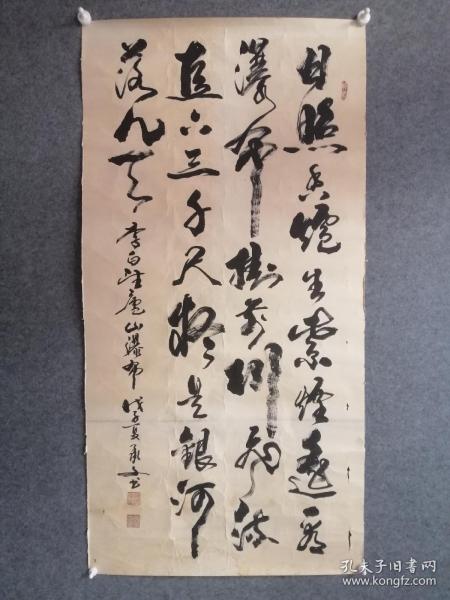 日照香炉生紫烟遥看
瀑布挂前川飞流
直下三千尺疑是银河
落九天
李白望庐山瀑布 戊子夏
书
孔夫子旧书网
www.kongfz.com